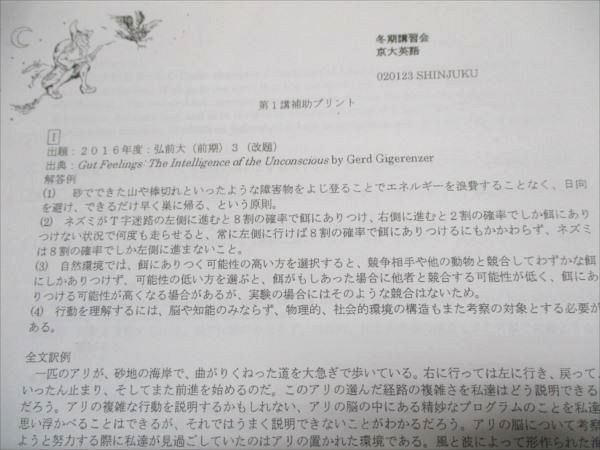 冬期講習会
京大英語
020123 SHINJUKU
第1講補助プリント
1
出題：2016年度：弘前大（前期）3（改題）
出典：Gut Feelings: The Intelligence of the Unconscious by Gerd Gigerenzer
解答例
(1) 砂でできた山や棒切れといったような障害物をよじ登ることでエネルギーを浪費することなく、日向
を避け、できるだけ早く巣に帰る、という原則。
(2) ネズミがT字迷路の左側に進むと8割の確率で餌にありつけ、右側に進むと2割の確率でしか餌にあり
つけない状況で何度も走らせると、常に左側に行けば8割の確率で餌にありつけるにもかかわらず、ネズミ
は8割の確率でしか左側に進まないこと。
(3) 自然環境では、餌にありつく可能性の高い方を選択すると、競争相手や他の動物と競合してわずかな餌
にしかありつけず、可能性の低い方を選ぶと、餌がもしあった場合に他者と競合する可能性が低く、餌にあ
りつける可能性が高くなる場合があるが、実験の場合にはそのような競合はないため。
(4) 行動を理解するには、脳や知能のみならず、物理的、社会的環境の構造もまた考察の対象とする必要が
ある。
全文訳例
一匹のアリが、砂地の海岸で、曲がりくねった道を大急ぎで歩いている。右に行っては左に行き、戻って、
いったん止まり、そしてまた前進を始めるのだ。このアリの選んだ経路の複雑さを私達はどう説明できる
だろう。アリの複雑な行動を説明するかもしれない、アリの脳の中にある精妙なプログラムのことを私達
思い浮かべることはできるが、それではうまく説明できないことがわかるだろう。アリの脳について考察
ようと努力する際に私達が見過ごしていたのはアリの置かれた環境である。風と波によって形作られた海